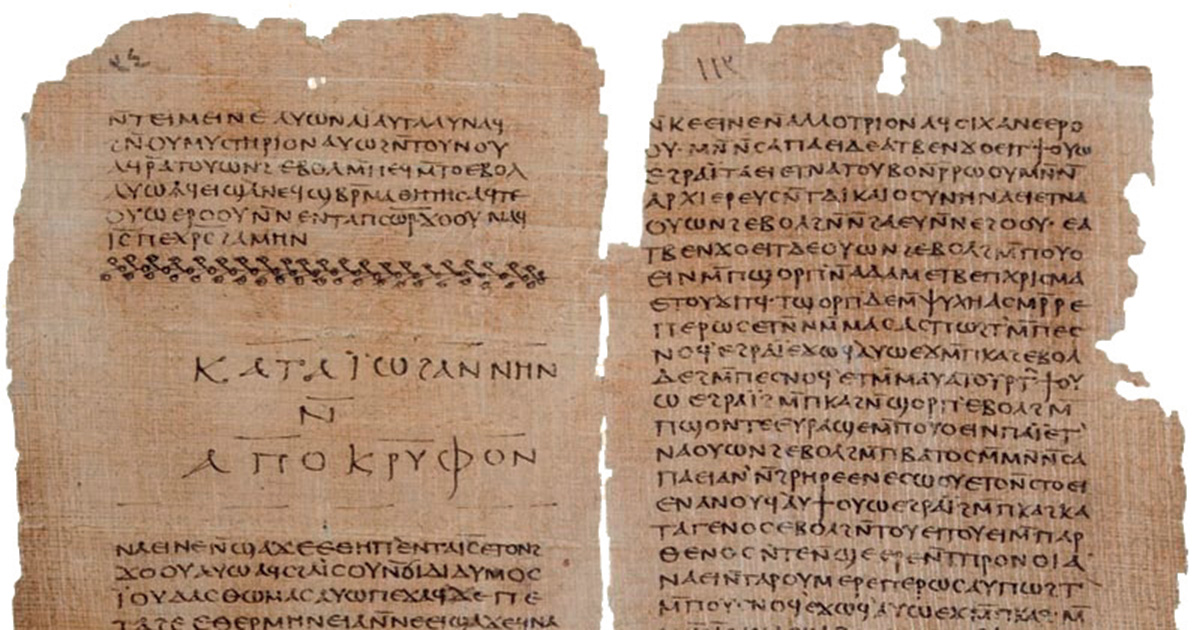 ⲛ̄ⲧⲉⲓⲙⲉⲓⲛⲉ ⲁⲩⲱ ⲛⲁⲓ̈ ⲁⲩⲧⲁⲁⲩ ⲛⲁϥ
ϩⲛ̄ ⲟⲩⲙⲩⲥⲧⲏⲣⲓⲟⲛ ⲁⲩⲱ ϩⲛ̄ ⲧⲟⲩⲛⲟⲩ
ⲁϥⲣ̄ⲁⲧⲟⲩⲱⲛϩ ⲉⲃⲟⲗ ⲙ̄ⲡⲉϥⲙ̄ⲧⲟ ⲉⲃⲟⲗ
ⲁⲩⲱ ⲁϥⲉⲓ ϣⲁ ⲛⲉϥϣⲃⲣ̄ⲙⲁⲑⲏⲧⲏⲥ ⲁϥⲧⲉ
ⲟⲩⲱ ⲉⲣⲟⲟⲩ ⲛ̄ⲛⲉⲛⲧⲁⲡⲥⲱⲣ̄ ϫⲟⲟⲩ ⲛⲁϥ
ⲓ̄ⲥ̄ ⲡⲉⲭ̄ⲣ̄ⲥ̄ ϩⲁⲙⲏⲛ
ⲕⲁⲧⲁ ⲓ̈ⲱϩⲁⲛⲛⲏⲛ
ⲛ̄
ⲁⲡⲟⲕⲣⲩⲫⲟⲛ
ⲛⲁⲉⲓ ⲛⲉ ⲛ̄ϣⲁϫⲉ ⲉⲑⲏⲡ ⲉⲛⲧⲁⲓ̄ⲥ̄ ⲉⲧⲟⲛϩ
ϫⲟⲟⲩ ⲁⲩⲱ ⲁϥⲥϩⲁⲓ̈ⲥⲟⲩ ⲛ̄ϭⲓ ⲇⲓⲇⲩⲙⲟⲥ
ⲓ̈ⲟⲩⲇⲁⲥ ⲑⲱⲙⲁⲥ ⲁⲩⲱ ⲡⲉϫⲁϥ ϫⲉ ⲡⲉ
ⲧⲁϩⲉ ⲉⲑⲉⲣⲙⲏⲛⲉⲓⲁ ⲛ̄ⲛⲉⲉⲓϣⲁϫⲉ ϥⲛⲁ
ⲛ̄ⲕⲉⲉⲓⲛⲉ ⲛ̄ⲁⲗⲗⲟⲧⲣⲓⲟⲛ ⲁϥϭⲓϫⲁⲛⲉ ⲉⲣⲟ
ⲟⲩ· ⲙⲛ̄ⲛ̄ⲥⲁ ⲡⲁⲉⲓ ⲇⲉ ⲁⲧⲃⲉⲛϫⲟⲉⲓⲧ ϯ ⲟⲩⲱ
ⲉϩⲣⲁⲓ̈ ⲧⲁⲉⲓ ⲉⲧⲛⲁⲧⲟⲩⲃⲟ ⲛ̄ⲣ̄ⲣⲱⲟⲩ ⲙⲛ̄ⲛ̄
ⲁⲣⲭⲓⲉⲣⲉⲩⲥ ⲛ̄ⲧⲇⲓⲕⲁⲓⲟⲥⲩⲛⲏ ⲛⲁⲉⲓ ⲉⲧⲛⲁ
ⲟⲩⲱⲛϩ ⲉⲃⲟⲗ ϩⲛ̄ⲛ̄ϩⲁⲉⲩ ⲛ̄ⲛϩⲟⲟⲩ· ⲉⲁ
ⲧⲃⲉⲛϫⲟⲉⲓⲧ ⲇⲉ ⲟⲩⲱⲛϩ ⲉⲃⲟⲗ ϩⲙ̄ ⲡⲟⲩⲟ
ⲉⲓⲛ ⲙ̄ⲡϣⲟⲣⲡ ⲛ̄ⲁⲇⲁⲙ ⲉⲧⲃⲉ ⲡⲭⲣⲓⲥⲙⲁ
ⲉⲧⲟⲩⲛⲁϫⲓⲧϥ· ⲧϣⲟⲣⲡ ⲇⲉ ⲙ̄ⲯⲩⲭⲏ ⲁⲥⲙⲣ̄ⲣⲉ
ⲡⲉⲣⲱⲥ ⲉⲧⲛ̄ⲛⲙ̄ⲙⲁⲥ ⲁⲥⲡⲱϩⲧ ⲙ̄ⲡⲉⲥ
ⲥⲛⲟϥ ⲉϩⲣⲁⲓ̈ ⲉϫⲱϥ ⲁⲩⲱ ⲉϫⲙ̄ ⲡⲕⲁϩ ⲉⲃⲟⲗ
ⲇⲉ ϩⲙ̄ ⲡⲉⲥⲛⲟϥ ⲉⲧⲙ̄ⲙⲁⲩ ⲁⲡⲟⲩⲣⲧ ϯ ⲟⲩ
ⲱ ⲉϩⲣⲁⲓ̈ ϩⲓϫⲙ̄ ⲡⲕⲁϩ ⲛ̄ϣⲟⲣⲡ ⲉⲃⲟⲗ ϩⲙ̄
ⲡϣⲟⲛⲧⲉ ⲉⲩⲣⲁϣⲉ ⲙ̄ⲡⲟⲩⲟⲉⲓⲛ ⲡⲁⲓ̈ ⲉⲧ
ⲛⲁⲟⲩⲱⲛϩ ⲉⲃⲟⲗ ϩⲙ̄ ⲡⲃⲁⲧⲟⲥ ⲙⲛ̄ⲛ̄ⲥⲁ
ⲡⲁⲉⲓ ⲁⲛ̄ϩⲣⲏⲣⲉ ⲉⲛⲉⲥⲱⲟⲩ ⲉⲧⲟⲛ̄ⲥϯⲟⲉⲓ
ⲉⲛⲁⲛⲟⲩϥ ⲁⲩϯ ⲟⲩⲱ ⲉϩⲣⲁⲓ̈ ϩⲙ̄ ⲡⲕⲁϩ ⲕⲁ
ⲧⲁ ⲅⲉⲛⲟⲥ ⲉⲃⲟⲗ ϩⲛ̄ ⲧⲟⲩⲉⲓ ⲧⲟⲩⲉⲓ ⲙ̄ⲡⲁⲣ
ⲑⲉⲛⲟⲥ ⲛ̄ⲧⲉ ⲛ̄ϣⲉⲉⲣⲉ ⲛ̄ⲧⲡⲣⲟⲛⲟⲓⲁ
ⲛⲁⲉⲓ ⲛ̄ⲧⲁⲣⲟⲩⲙⲉⲣⲉ ⲡⲉⲣⲱⲥ ⲁⲩⲡⲱϩⲧ
ⲙ̄ⲡⲟⲩⲥⲛⲟϥ ⲉϫⲱϥ ⲁⲩⲱ ⲉϫⲙ̄ ⲡⲕⲁϩ· ⲙ̄